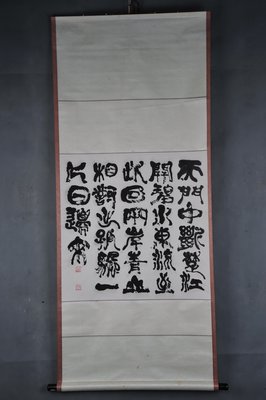 天門中斷楚江
開碧水東流至
此回兩岸青山
相對出孤帆一
片日邊來